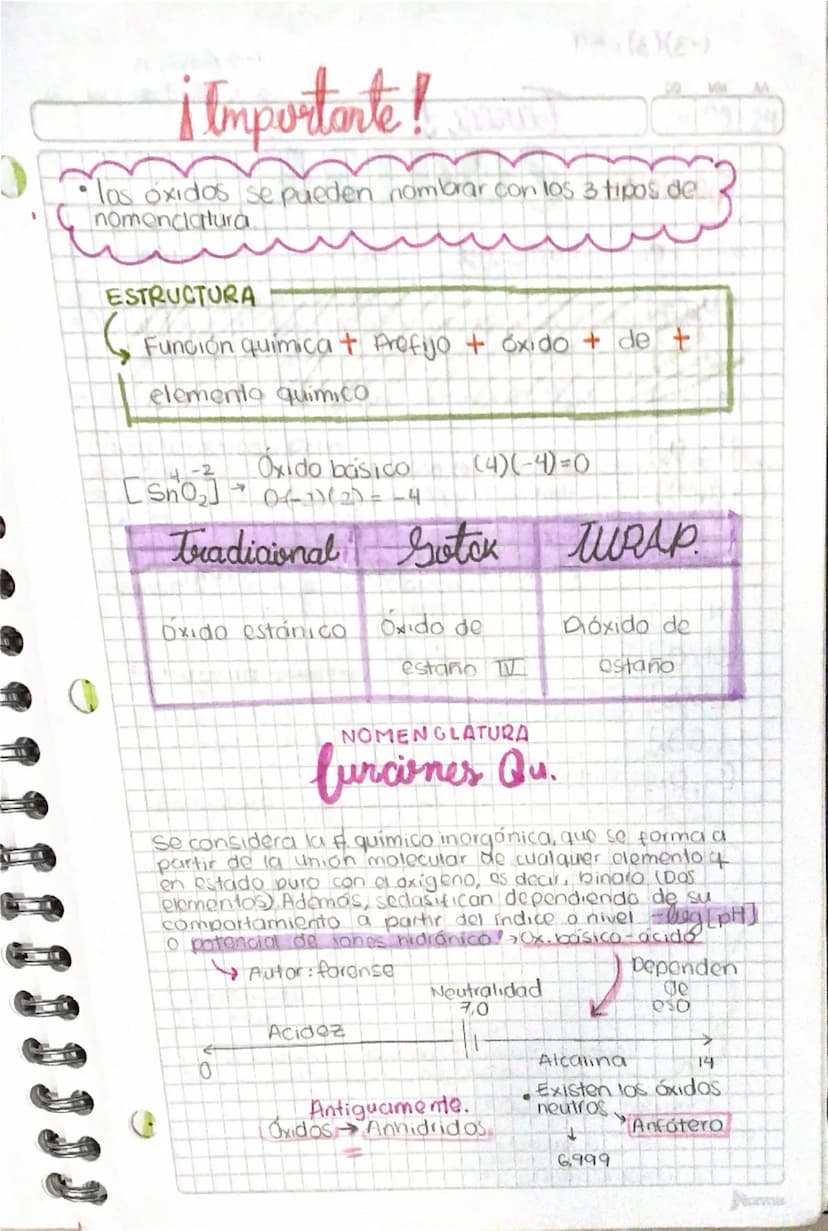 ¡Importante!
• los óxidos se pueden nombrar con los 3 tipos de
nomenclatura
ESTRUCTURA
Función química + Prefijo + óxido + de +
elemento químico
4 -2 Óxido básico (4)(-4)=0
[SnO2] → O(-2)(2) = -4
Tradicional Sotck IURAP.
Óxido estánico Óxido de Dióxido de
estaño IV estaño
NOMENCLATURA
funciones Qu.
Se considera la F. químico inorgánica, que se forma a
partir de la unión molecular de cualquier elemento q
en estado puro con el oxígeno, es decir, binaro (Dos
elementos). Además, se clasifican dependiendo de su
comportamiento a partir del índice o nivel -log[pH]
o potencial de iones hidrónico → Ox. básico-ácido
Autor: forense Dependen
Neutralidad de
7,0 eso
Acidez
0 Alcalina 14
• Existen los óxidos
Antiguamente. neutros
Óxidos → Anhidridos. Anfótero
6,999
Norma